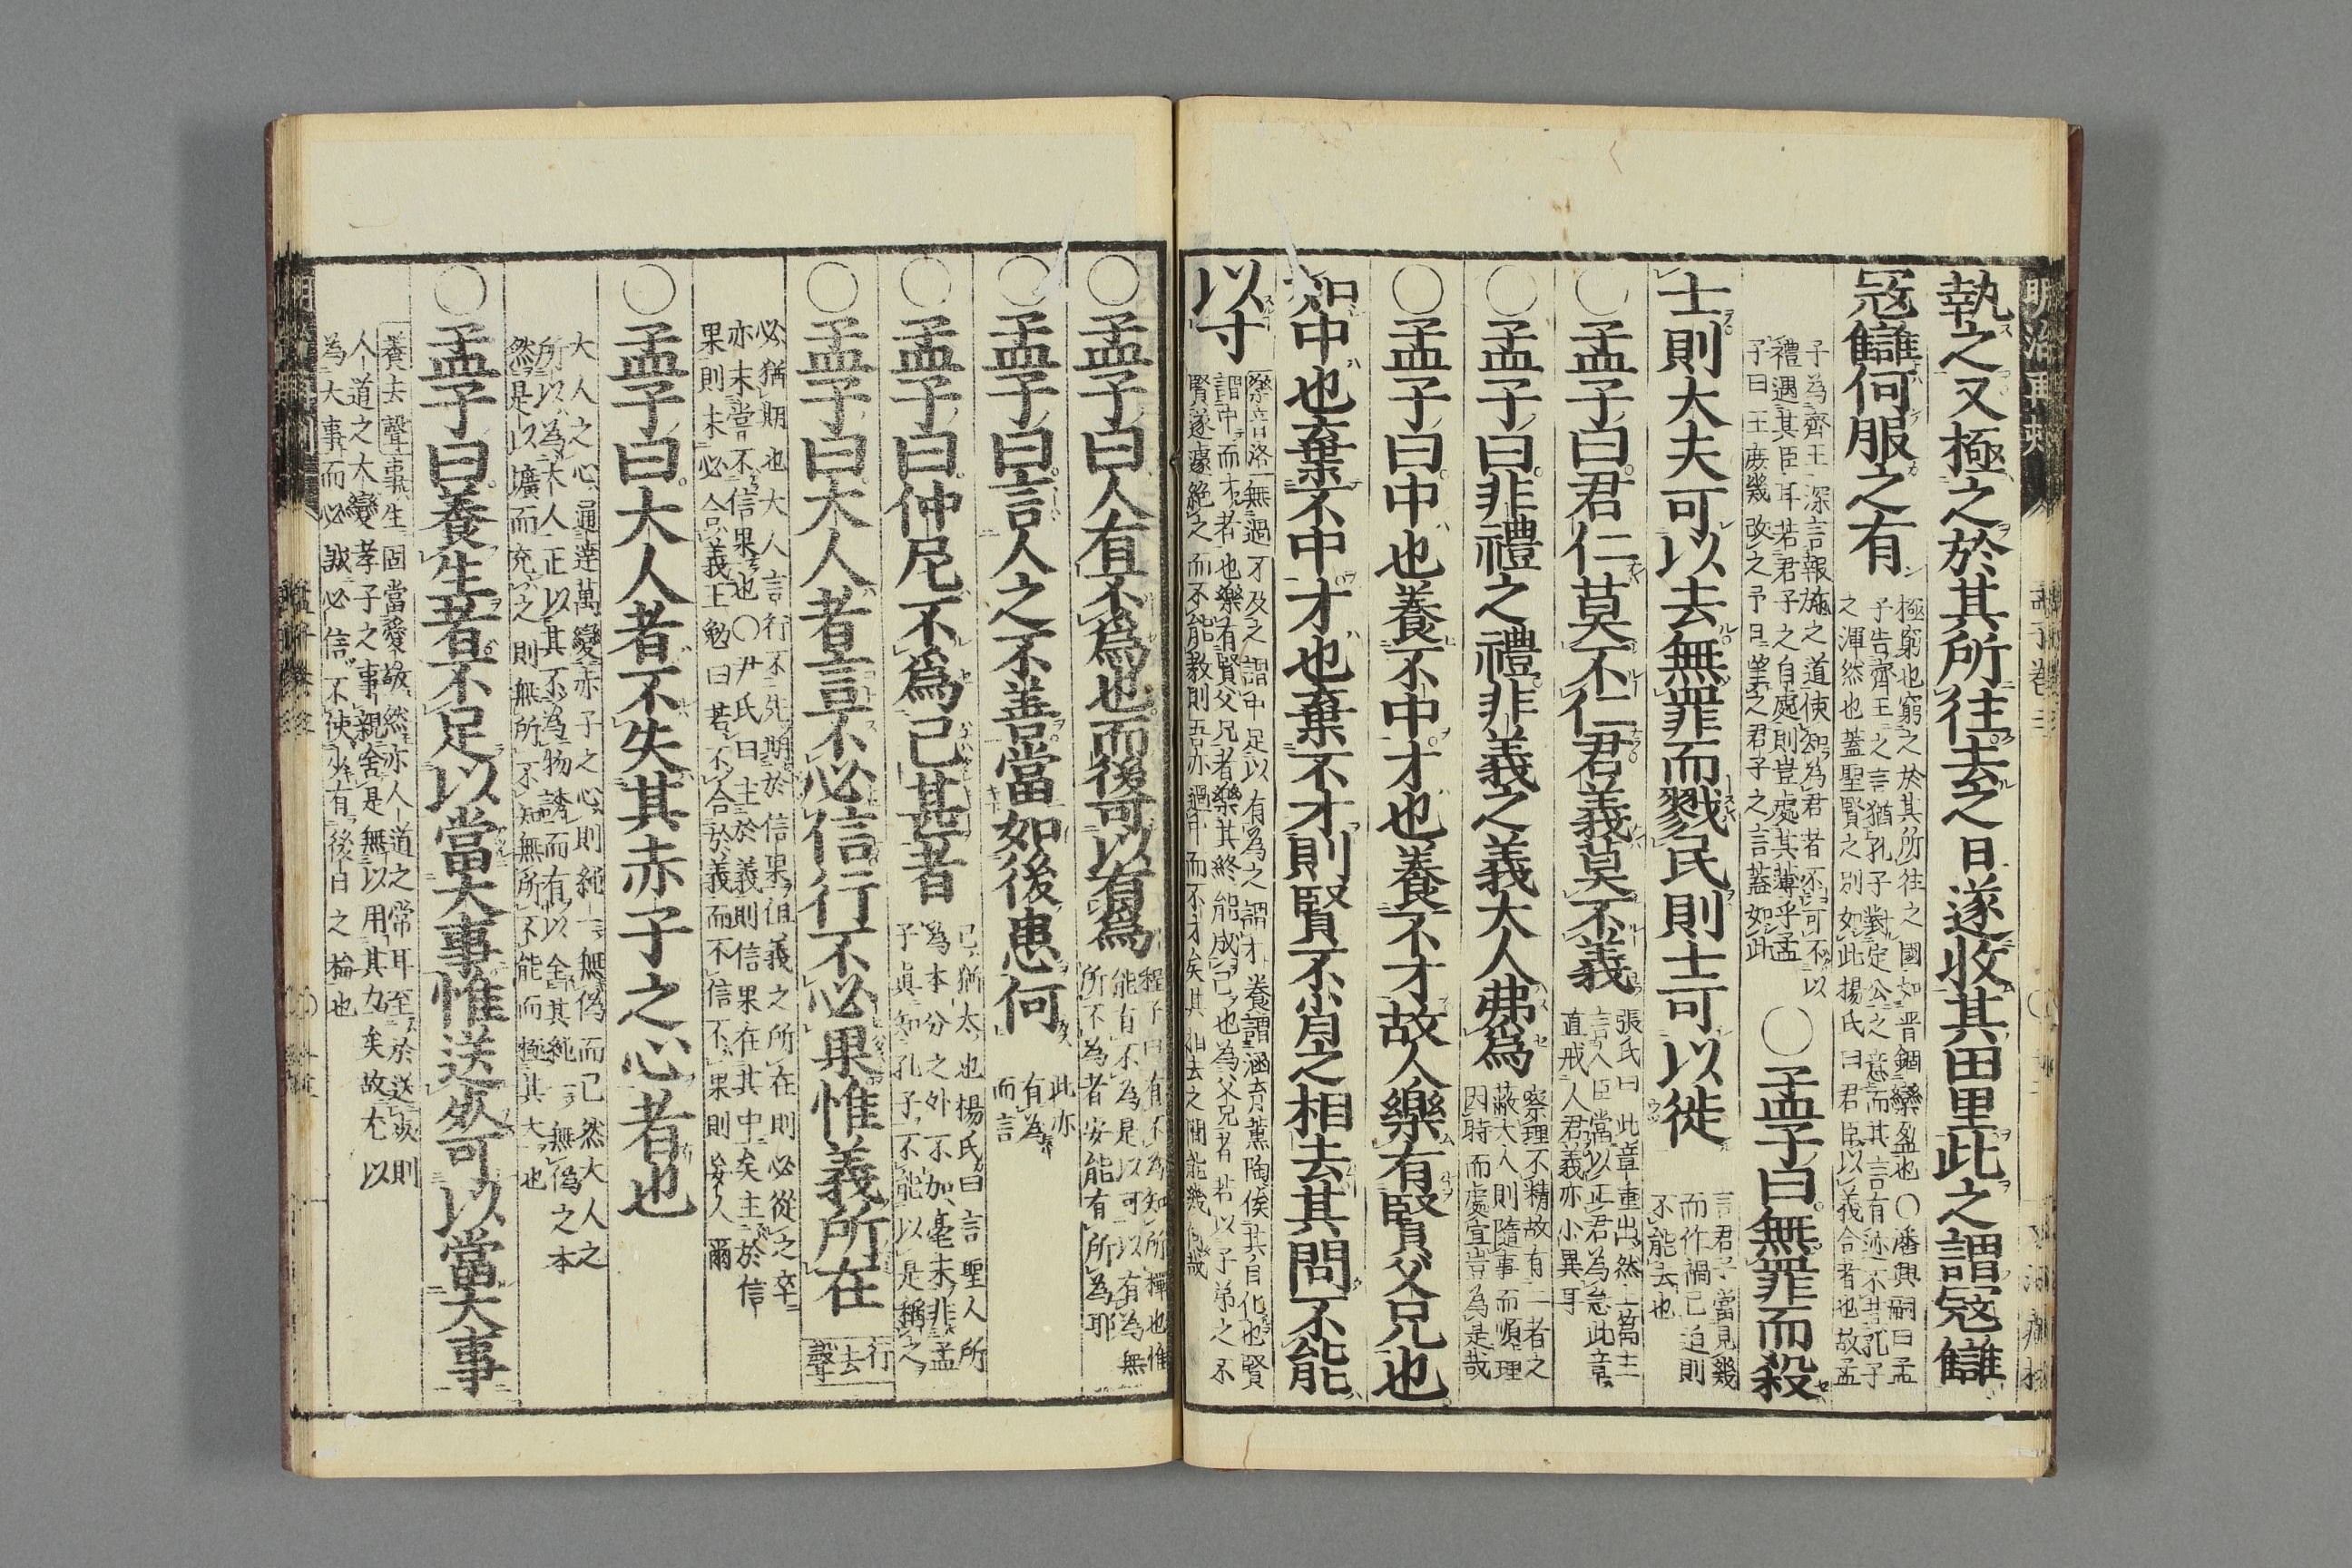 執之又極之於其所往去之日遂收其田里此之謂寇讎
寇讎何服之有
極窮也窮之於其所往之國如晋錮欒盈也○潘興嗣曰孟
子告齊王之言猶孔子對定公之意而其言有迹不若孔子
之渾然也蓋聖賢之別如此揚氏曰君臣以義合者也故孟
子為齊王深言報施之道使知為君者不可不以
禮遇其臣耳若君子之自處則豈處其薄乎孟
子曰王庶幾改之予日望之君子之言蓋如此
○孟子曰無罪而殺
士則大夫可以去無罪而戮民則士可以徙
言君子當見幾
而作禍已迫則
不能去也
○孟子曰君仁莫不仁君義莫不義
張氏曰此章重出然上篇主
言人臣當以正君為急此章
直戒人君義亦小異耳
○孟子曰非禮之禮非義之義大人弗爲
察理不精故有二者之
蔽大人則隨事而順理
因時而處宜豈為是哉
○孟子曰中也養不中才也養不才故人樂有賢父兄也
如中也棄不中才也棄不才則賢不肖之相去其間不能
以寸
樂音洛無過不及之謂中足以有為之謂才養謂涵育薫陶俟其自化也賢
謂中而才者也樂有賢父兄者樂其終能成己也為父兄者若以子弟之不
賢遂遽絶之而不能教則吾亦過中而不才矣其相去之間能幾何哉
○孟子曰人有不爲也而後可以有爲
程子曰有不為知所擇也惟
能有不為是以可以有為無
所不為者安能有所為耶
○孟子曰言人之不善當如後患何
此亦
有為
而言
○孟子曰仲尼不爲已甚者
已猶太也楊氏曰言聖人所
為本分之外不加毫末非孟
子眞知孔子不能以是稱之
○孟子曰大人者言不必信行不必果惟義所在
行
去
聲
必猶期也大人言行不先期於信果但義之所在則必從之卒
亦未嘗不信果也○尹氏曰主於義則信果在其中矣主於信
果則未必合義王勉曰若不合於義而不信不果則妄人爾
○孟子曰大人者不失其赤子之心者也
大人之心通達萬變赤子之心則純一無偽而已然大人之
所以為大人正以其不為物誘而有以全其純一無偽之本
然是以擴而充之則無所不知無所不能而極其大也
○孟子曰養生者不足以當大事惟送死可以當大事
養去聲事生固當愛敬然亦人道之常耳至於送死則
人道之大變孝子之事親舍是無以用其力矣故尤以
為大事而必誠必信不使少有後日之悔也